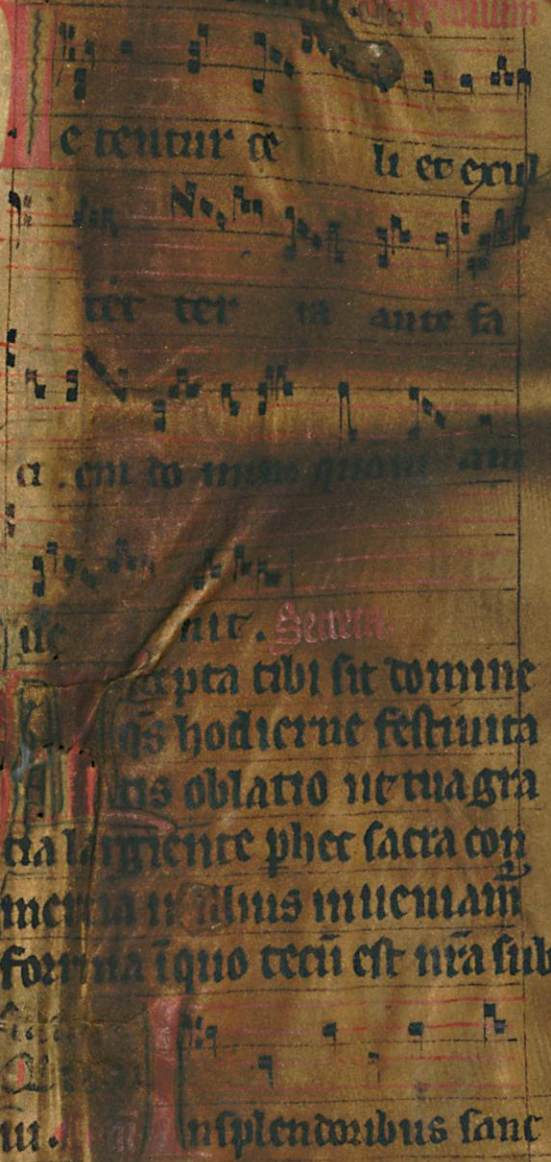 Letentur celi et exul
tet ter ra ante fa
ci.em do mini quoniam
ue nit. Secreta.
Accepta tibi sit domine
q̄s hodierne festiuita
tis oblatio ut tua gra
cia largiente p hec sacra con
mercia in illius inueniam̄
forma ī quo tecū est nr̄a sub
In splendoribus sanc